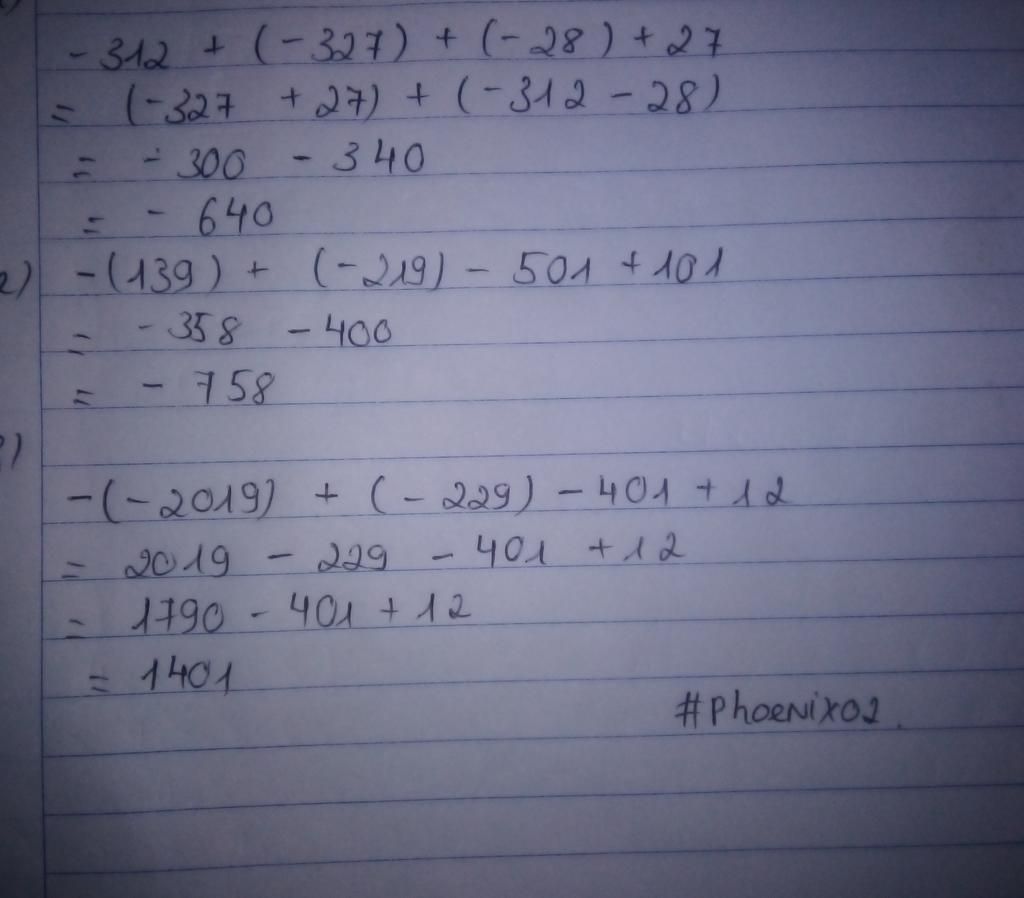 - 312 + (-327) + (-28) + 27
= (-327 + 27) + (-312 - 28)
= - 300 - 340
= - 640
2) -(139) + (-219) - 501 + 101
= - 358 - 400
= - 758
-(-2019) + (-229) - 401 + 12
= 2019 - 229 - 401 + 12
= 1790 - 401 + 12
= 1401
#Phoenix02.